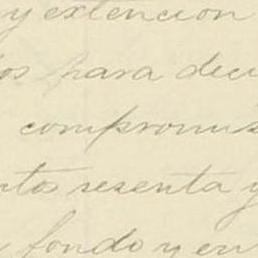 y extencion
os para deci
compromis
nto sesenta y
fondo y en